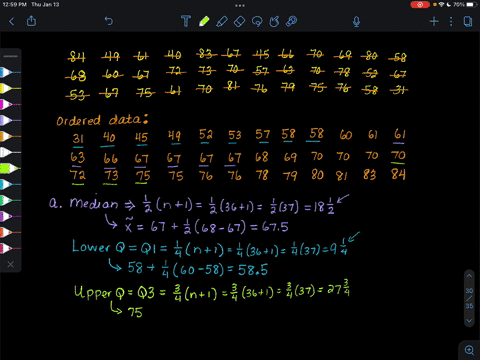 12:59 PM Thu Jan 13
76%
84 49 61 40 83 67 45 66 70 69 80 58
68 60 67 72 73 70 57 63 70 78 52 67
53 67 75 61 70 81 76 79 75 76 58 31
Ordered data:
31 40 45 49 52 53 57 58 58 60 61 61
63 66 67 67 67 67 68 69 70 70 70 70
72 73 75 75 76 76 78 79 80 81 83 84
a. Median ⇒ 1/2 (n+1) = 1/2 (36+1) = 1/2 (37) = 18 1/2
↳ x̃ = 67 + 1/2 (68-67) = 67.5
Lower Q = Q1 = 1/4 (n+1) = 1/4 (36+1) = 1/4 (37) = 9 1/4
↳ 58 + 1/4 (60-58) = 58.5
Upper Q = Q3 = 3/4 (n+1) = 3/4 (36+1) = 3/4 (37) = 27 3/4
↳ 75
30
/
35